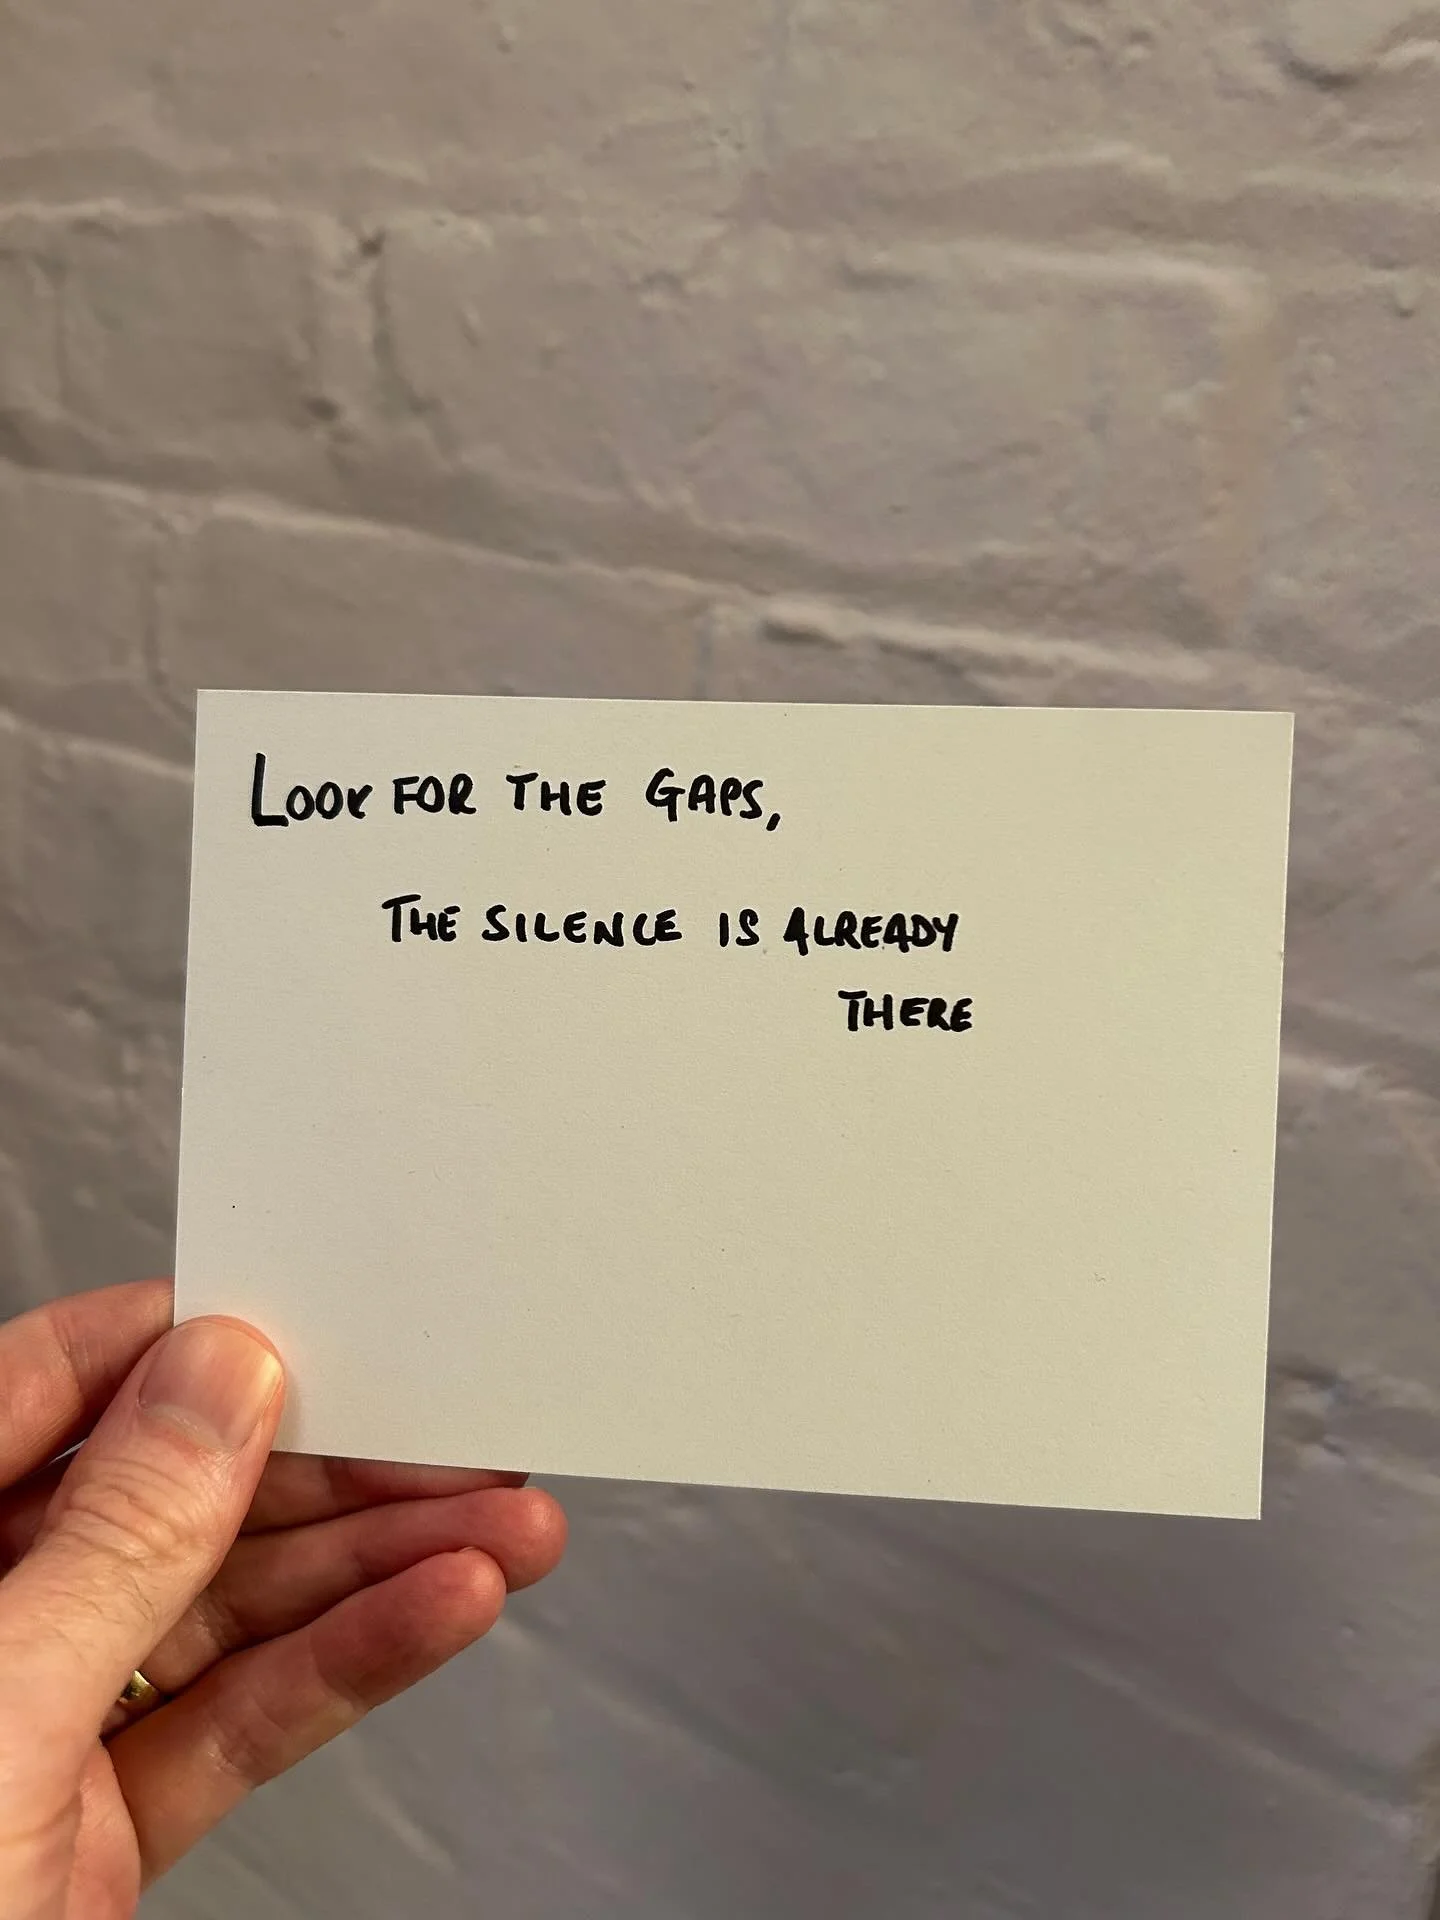 LOOK FOR THE GAPS,
THE SILENCE IS ALREADY
THERE